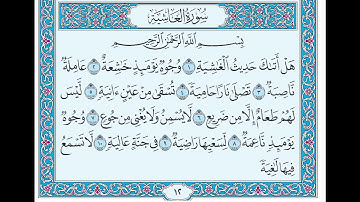 سُورَةُ الْغَاشِيَةِ
بِسْمِ اللَّهِ الرَّحْمَٰنِ الرَّحِيمِ
هَلْ أَتَىٰكَ حَدِيثُ الْغَٰشِيَةِ ١ وُجُوهٌ يَوْمَئِذٍ خَٰشِعَةٌ ٢ عَامِلَةٌ
نَّاصِبَةٌ ٣ تَصْلَىٰ نَارًا حَامِيَةً ٤ تُسْقَىٰ مِنْ عَيْنٍ ءَانِيَةٍ ٥ لَّيْسَ
لَهُمْ طَعَامٌ إِلَّا مِن ضَرِيعٍ ٦ لَّا يُسْمِنُ وَلَا يُغْنِي مِن جُوعٍ ٧ وُجُوهٌ
يَوْمَئِذٍ نَّاعِمَةٌ ٨ لِّسَعْيِهَا رَاضِيَةٌ ٩ فِي جَنَّةٍ عَالِيَةٍ ١٠ لَّا تَسْمَعُ
فِيهَا لَٰغِيَةً
١٢